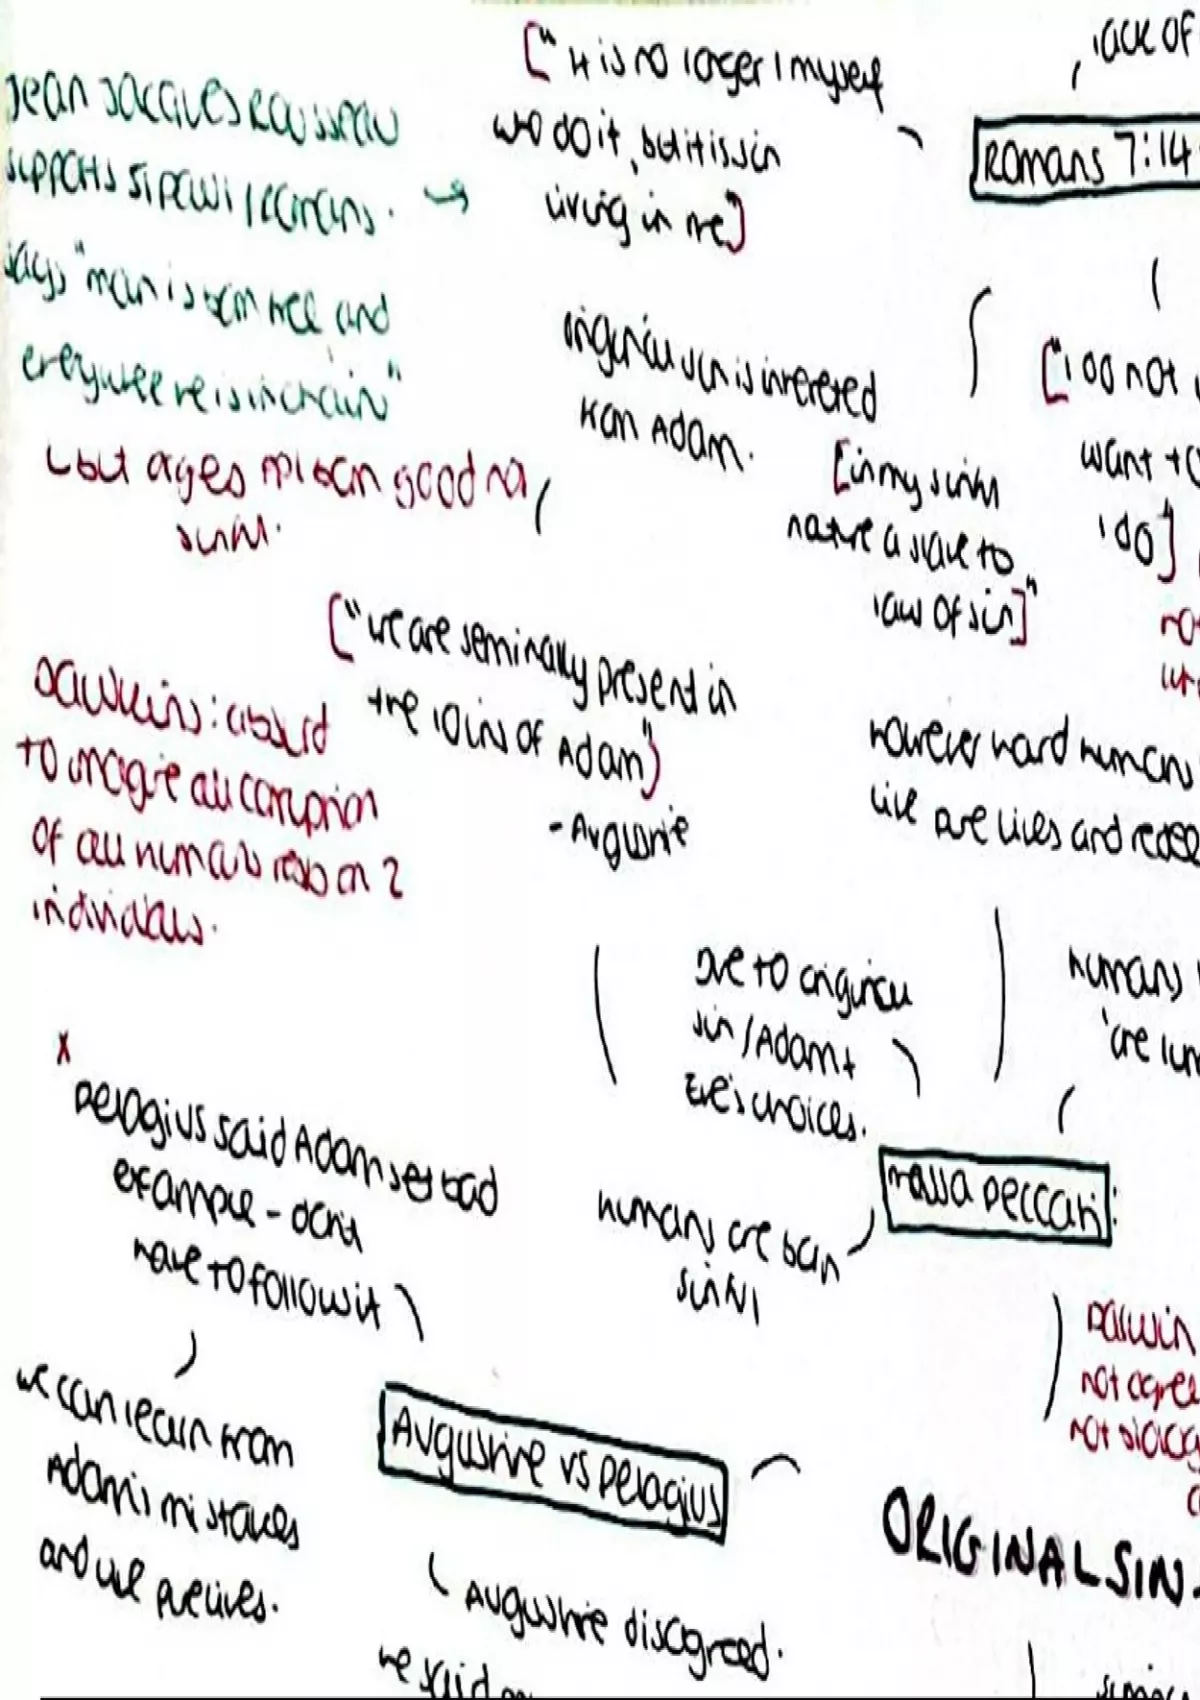 Jean Jacques Rousseau
supports sinful humans.
says "man is born free and
everywhere is in chain"
but argues not born good not
sinful.
["it is no longer I myself
who do it, but it is sin
living in me]
lack of
Romans 7:14
original sin is inhereted
from Adam.
["I do not
want to
I do]
[in my sinful
nature a slave to
law of sin]"
["we are seminally present in
the loins of Adam")
- Augustine
Dawkins: absurd
to imagine all corruption
of all humans on 2
individuals.
however hard humans
live pure lives and
due to original
sin / Adam +
Eve's choices.
humans
are
massa peccati:
humans are born
sinful
x
Pelagius said Adam set bad
example - don't
have to follow it
we can learn from
Adam's mistakes
and live pure lives.
Augustine vs Pelagius
Augustine disagreed.
he said
Darwin
not agree
not
ORIGINAL SIN